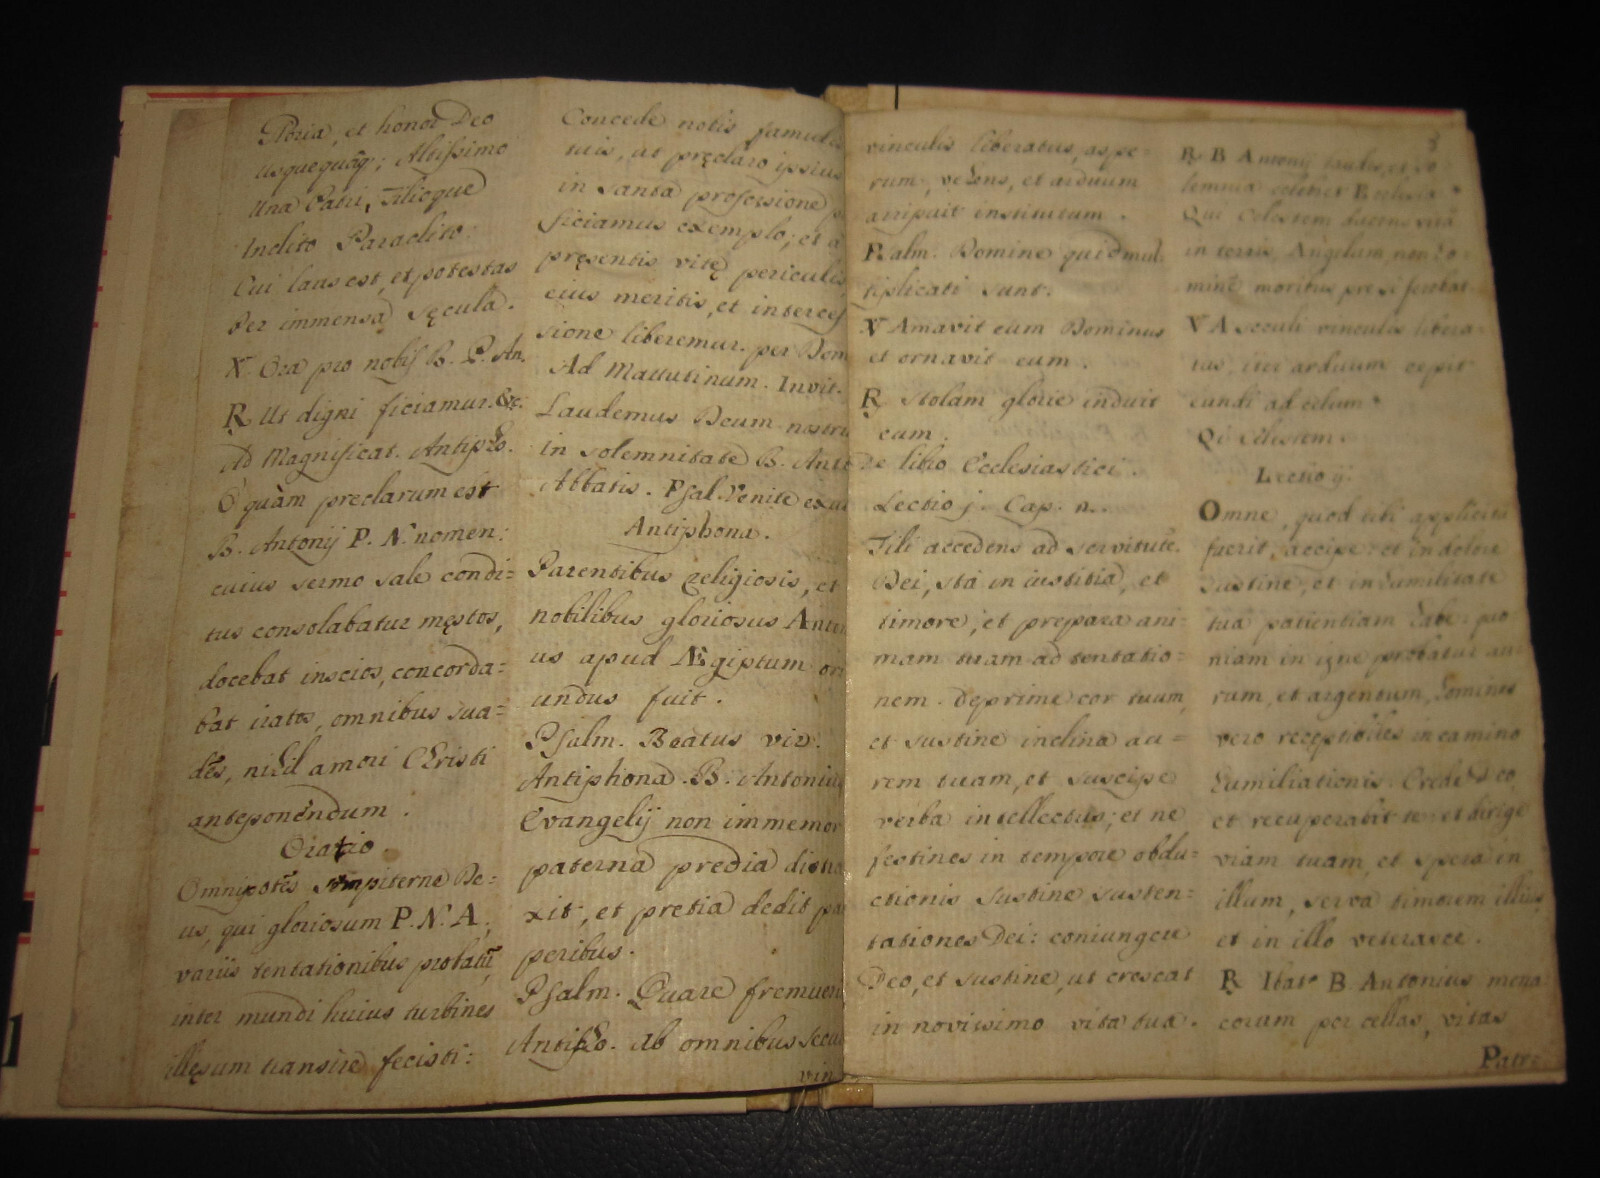 Gloria, et honor Deo
usquequáq; Altissimo
Una Patri, Filioque
Inclito Paraclito:
Cui laus est, et potestas
Per immensa sęcula.
V Ora pro nobis B. P. An.
R Ut digni ficiamur. &c.
Ad Magnificat. Antipho.
O quàm preclarum est
B. Antonij P. N. nomen:
cuius sermo sale condi=
tus consolabatur męstos,
docebat inscios, concorda=
bat iratos, omnibus sua=
dēs, nihil amori Christi
anteponendum.
Oratio.
Omnipotēs sempiterne De=
us, qui gloriosum P. N. A.
variis tentationibus probatū,
inter mundi huius turbines
illęsum transire fecisti:
Concede nobis famulis
tuis, ut pręclaro ipsius
in santa professione
ficiamur exemplo; et a
pręsentis vitę periculis
eius meritis, et interces
sione liberemur. per Dom
Ad Matutinum. Invit.
Laudemus Deum nostru
in solemnitate B. Anto
Abbatis. Psal. Venite exu
Antiphona.
Parentibus religiosis, et
nobilibus gloriosus Anton
us apud Ægiptum ori
undus fuit.
Psalm. Beatus vir.
Antiphona. B. Antonius
Evangelij non immemor
paterna predia distra
xit, et pretia dedit pau
peribus.
Psalm. Quare fremuer
Antipho. Ab omnibus secu
vin
vinculis liberatus, aspe=
rum, velons, et arduum
arripuit institutum.
Psalm. Domine quid mul.
tiplicati sunt.
V Amavit eum Dominus
et ornavit eum.
R Stolam glorie induit
eum.
De libro Ecclesiastici.
Lectio j. Cap. n.
Fili accedens ad servitutē
Dei, sta in iustitia, et
timore, et prepara ani=
mam tuam ad tentatio=
nem. deprime cor tuum,
et sustine inclina au=
rem tuam, et suscipe
verba intellectus; et ne
festines in tempore obdu=
ctionis sustine susten=
tationes Dei: coniungere
Deo, et sustine, ut crescat
in novissimo vita tua.
R B Antonij laudes, et so
lemnia celebret Ecclesia *
Qui Celestem ducens vitā
in terris, Angelum, non ho=
minē moribus pre se ferebat.
V A seculi vinculis libera=
tus, iter arduum cepit
eundi ad celum *
Qi Celestem.
Lectio ij.
Omne, quod tibi applicitū
fuerit, accipe: et in dolore
sustine, et in humilitate
tua patientiam habe: quo
niam in igne probatur au=
rum, et argentum, homines
vero receptibiles in camino
humiliationis. Crede Deo,
et recuperabit te: et dirige
viam tuam, et spera in
illum, serva timorem illius,
et in illo veterasce.
R Ibat B. Antonius mona
corum per cellas, vitas
Patr